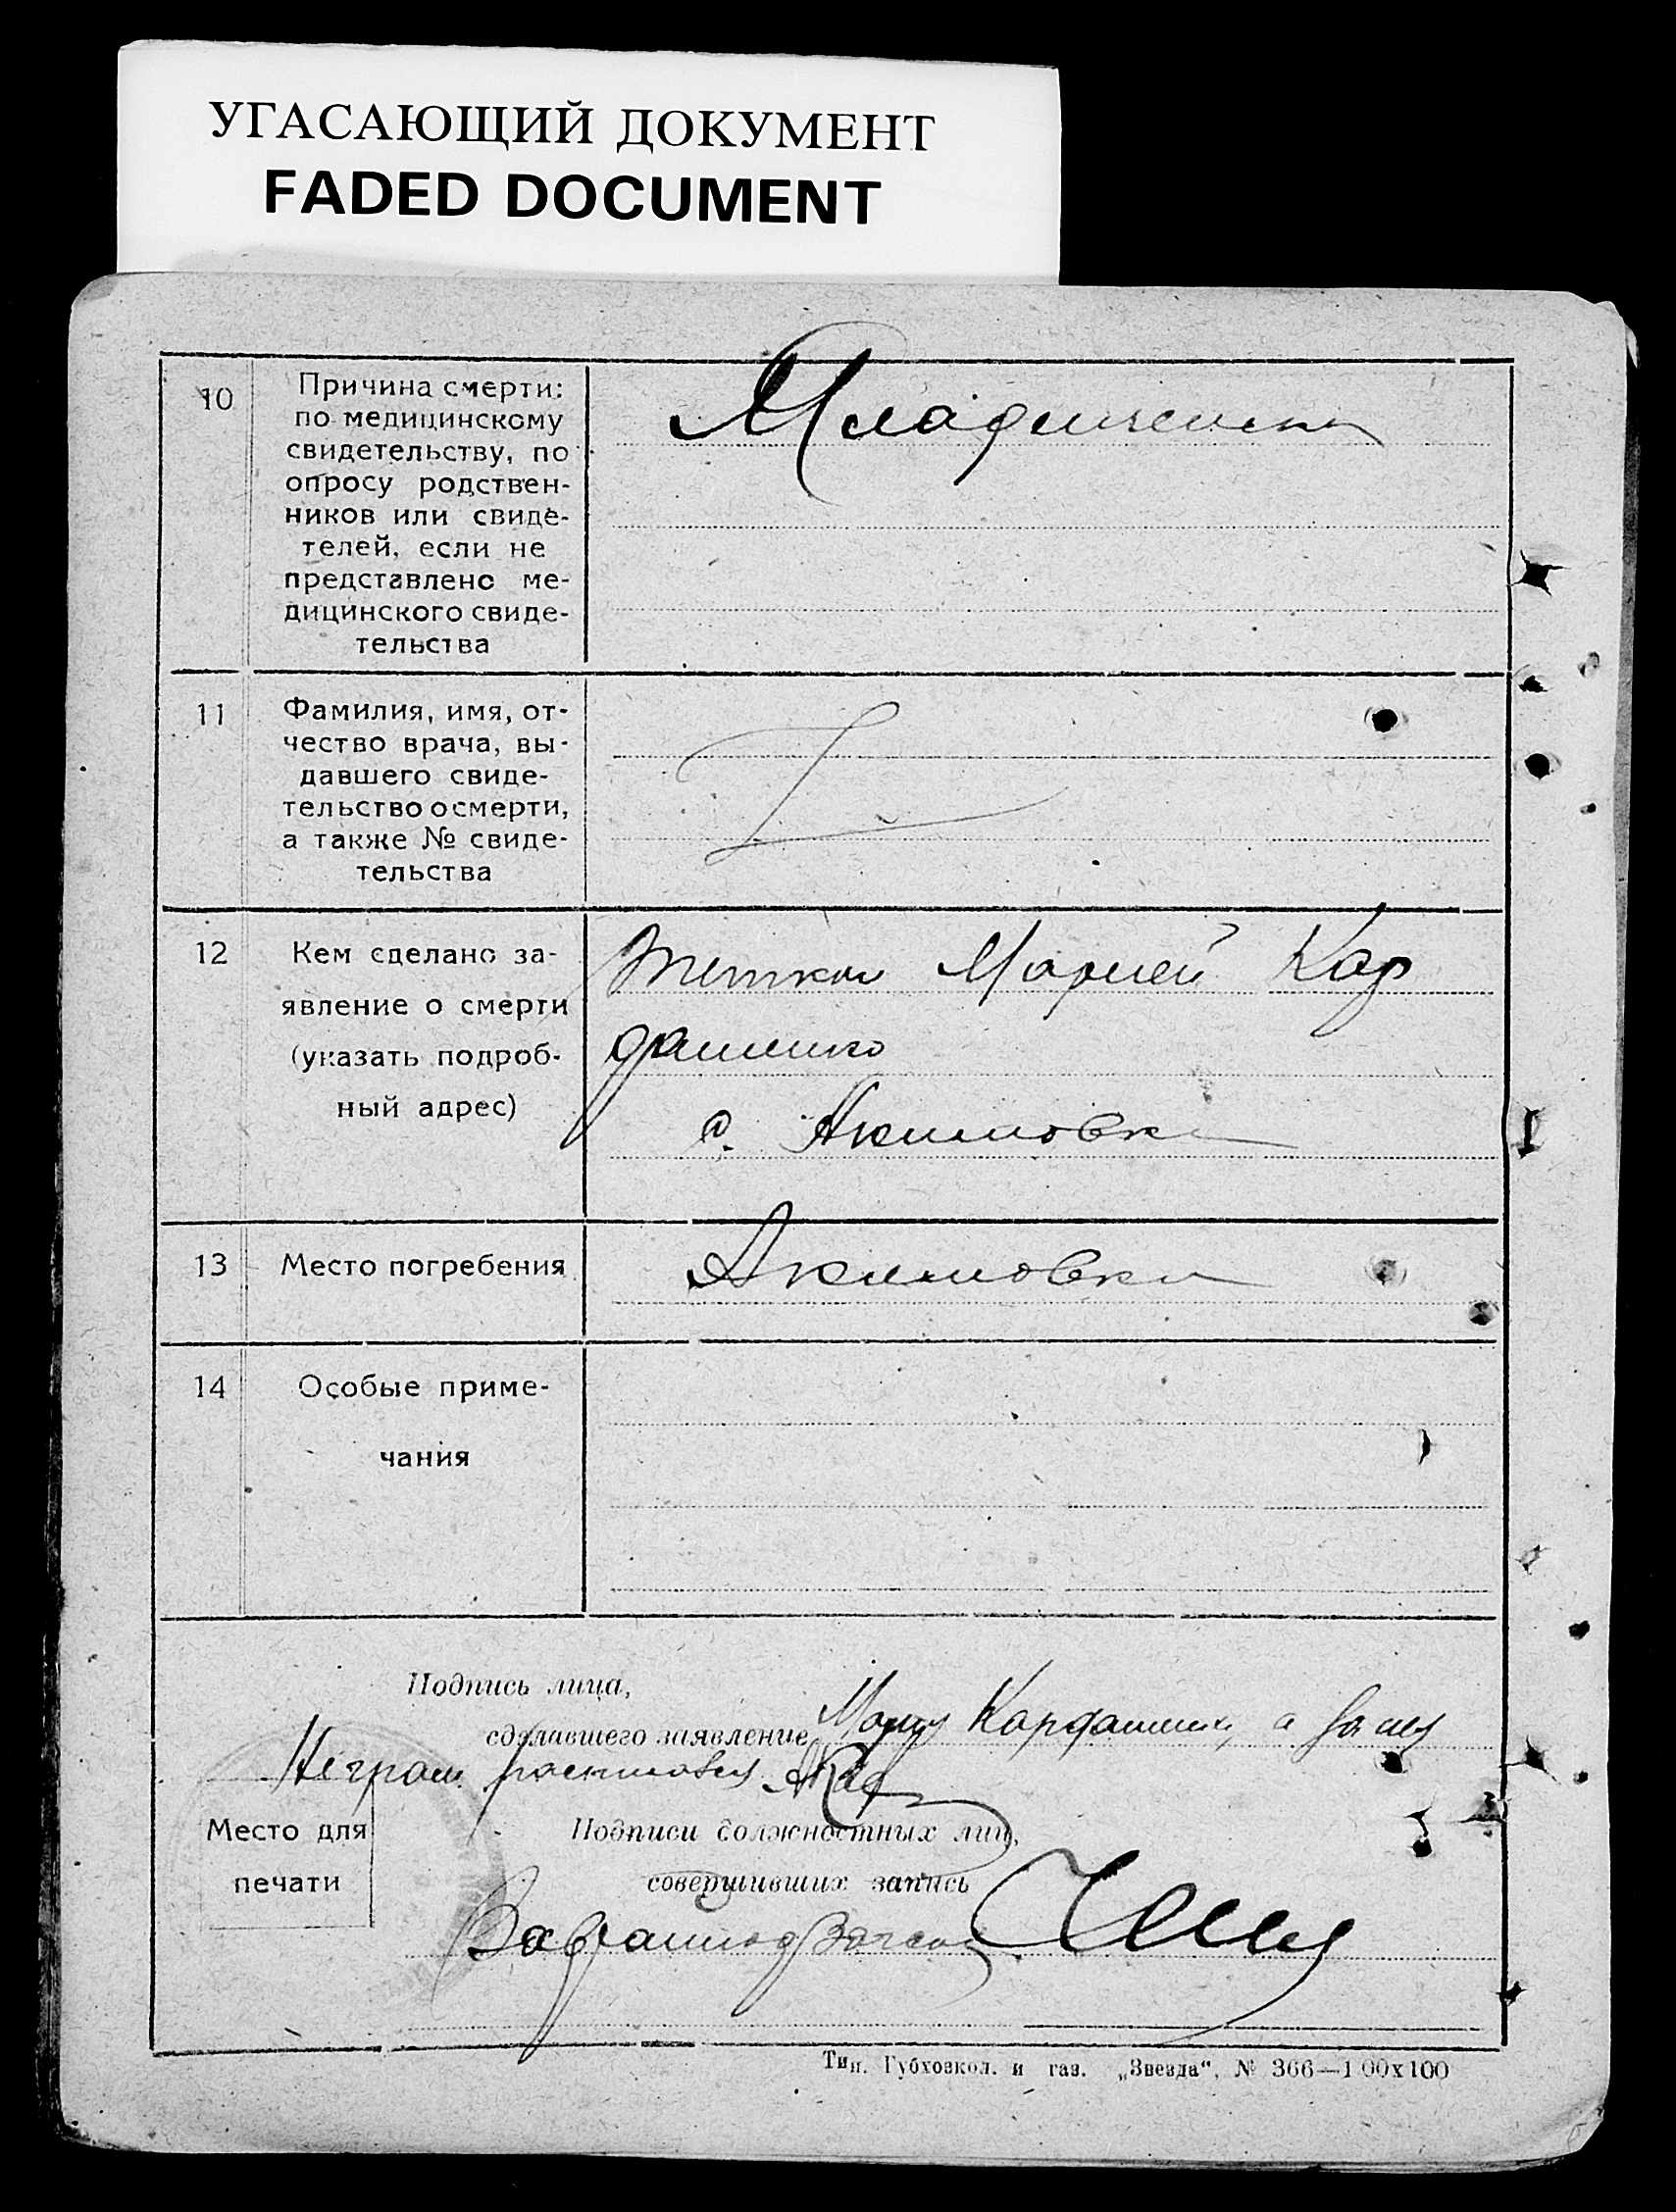 УГАСАЮЩИЙ ДОКУМЕНТ
FADED DOCUMENT
10
Причина смерти:
по медицинскому
свидетельству, по
опросу родствен-
ников или свиде-
телей, если не
представлено ме-
дицинского свиде-
тельства
Младенческая
11
Фамилия, имя, от-
чество врача, вы-
давшего свиде-
тельство о смерти,
а также № свиде-
тельства
12
Кем сделано за-
явление о смерти
(указать подроб-
ный адрес)
Марией Кар
дашенко
с. Акимовка
13
Место погребения
Акимовка
14
Особые приме-
чания
Подпись лица,
сделавшего заявление
Кардашенко, а за нея
Неграм.
Место для
печати
Подписи должностных лиц,
совершивших запись
Тип. Губхозкол. и газ. „Звезда“, № 366—100х100